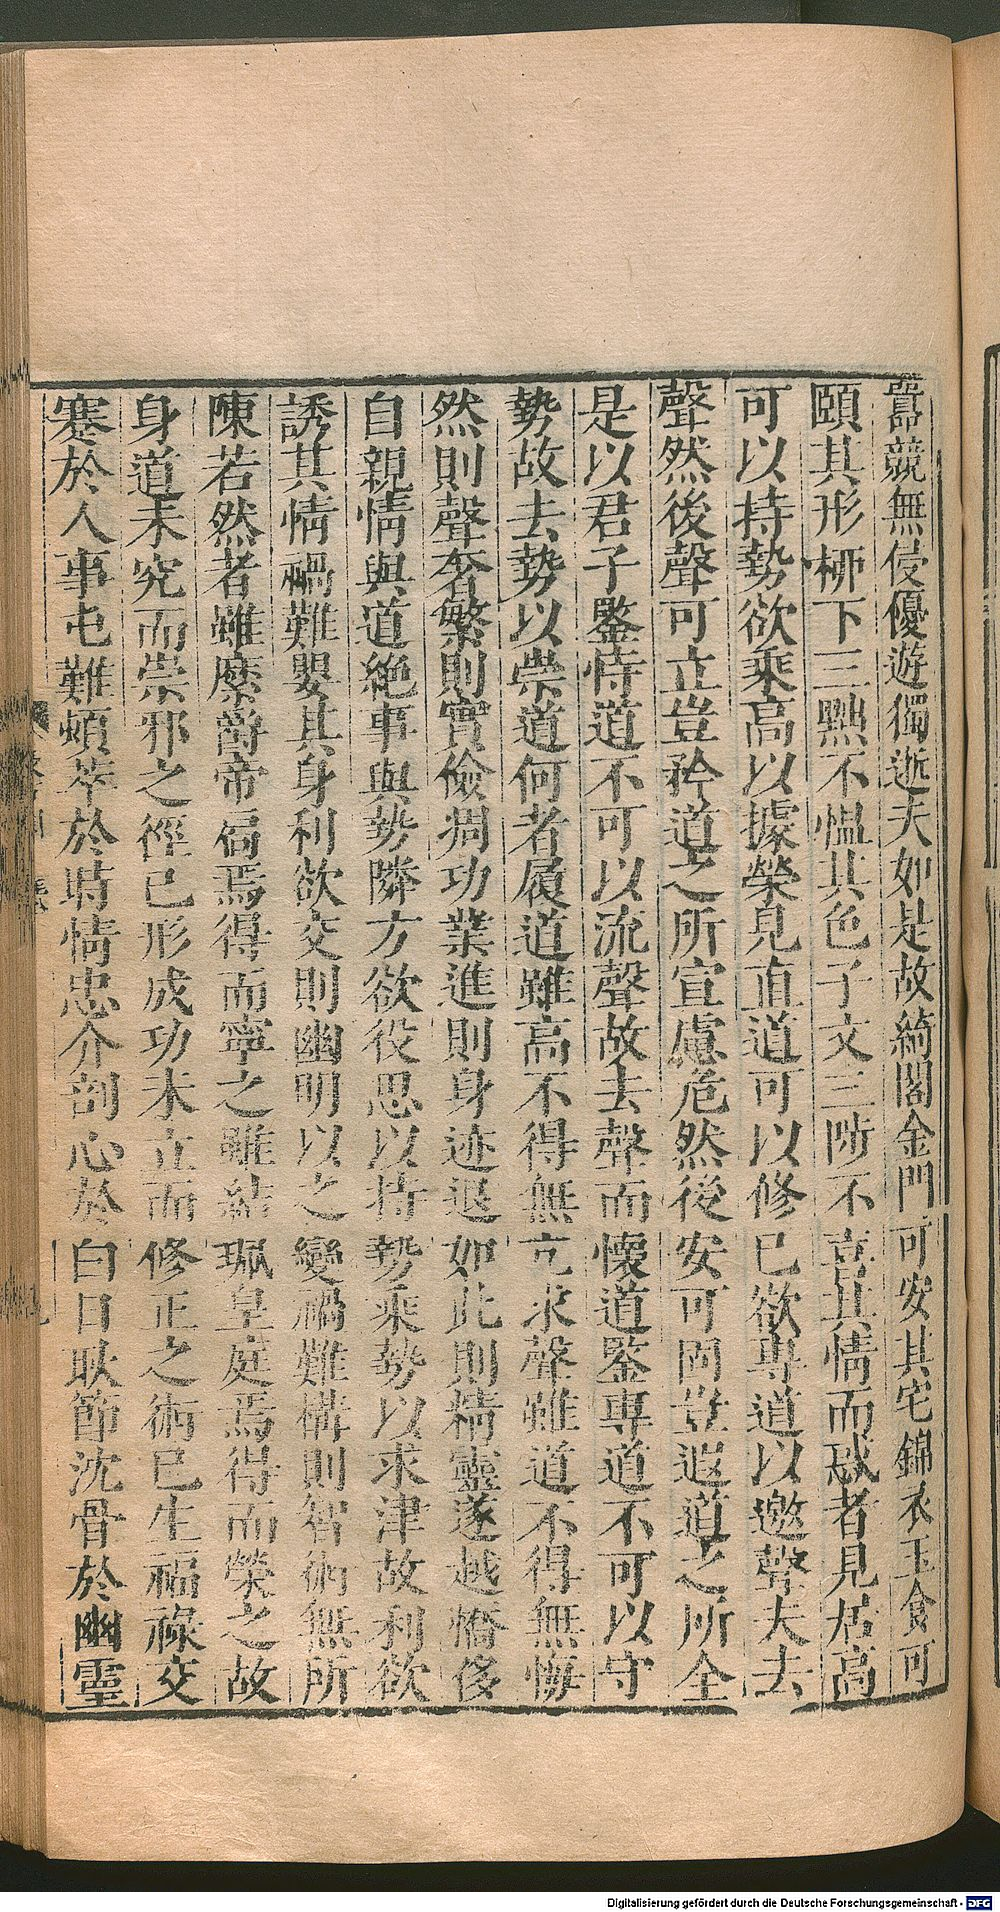 囂競無侵優遊獨逝夫如是故綺閣金門可安其宅錦衣玉食可
頤其形柳下三黜不慍其色子文三陟不喜其情而惑者見居高
可以持勢欲乘高以據榮見直道可以修已欲專道以邀聲夫去
聲然後聲可立豈矜道之所宣慮危然後安可固豈遐道之所全
是以君子鑒恃道不可以流聲故去聲而懷道鑒專道不可以守
勢故去勢以崇道何者履道雖高不得無亢求聲雖道不得無悔
然則聲奢繁則實儉凋功業進則身迹退如此則精靈遂越憍侈
自親情與道絶事與勢隣方欲役思以持勢乘勢以求津故利欲
誘其情禍難嬰其身利欲交則幽明以之變禍難構則智術無所
陳若然者雖縻爵帝扃焉得而寧之雖結珮皇庭焉得而榮之故
身道未究而崇邪之徑已形成功未立而修正之術已生福祿交
蹇於人事屯難頻萃於時情忠介剖心於白日耿節沈骨於幽靈
Digitalisierung gefördert durch die Deutsche Forschungsgemeinschaft - DFG